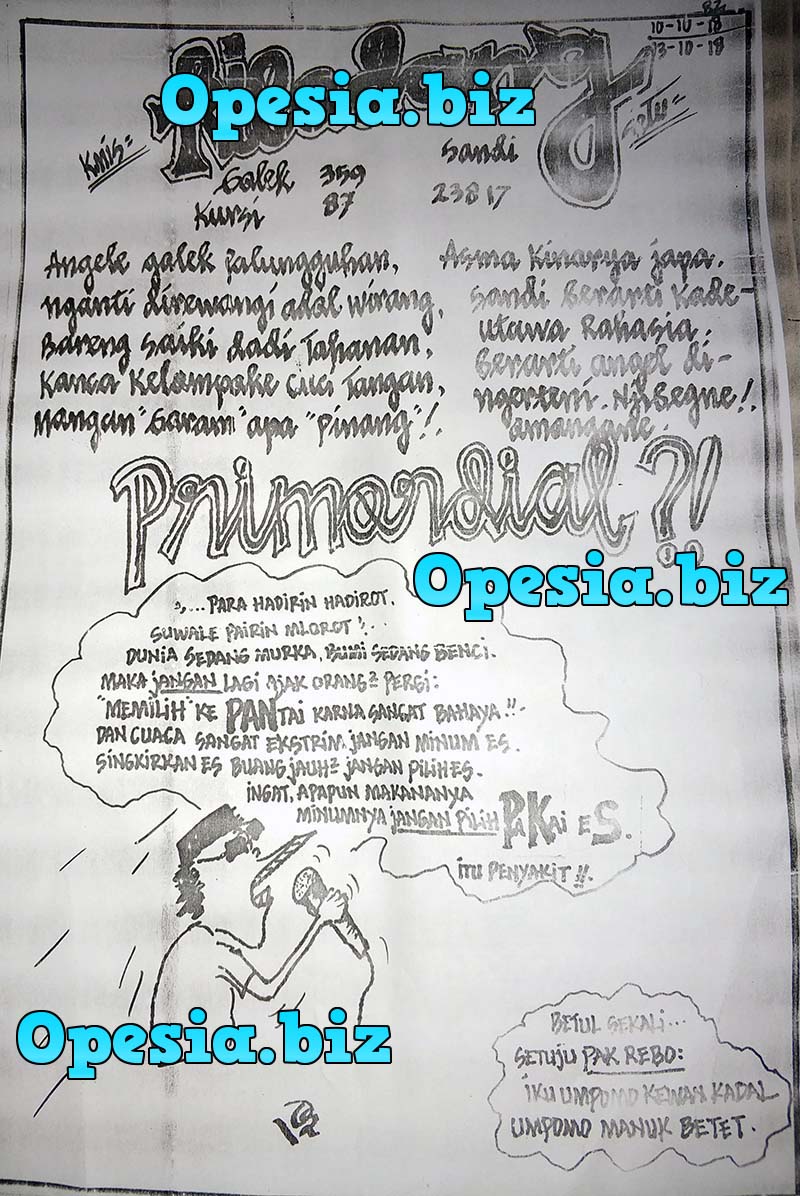 10-10-18
13-10-18
Opesia.biz
Kmis=
Setu=
Galek 359
Kursi 87
Sandi
23817
Angele golek palungguhan,
nganti direwangi adol wirang,
Bareng Saiki dadi Tahanan,
Kanca Kelampake Cuci Tangan,
Mangan "Garam" apa "Pinang"!.
Asma Kinarya japa.
Sandi Berarti Kade-
utawa Rahasia.
Berarti angel di-
ngerteni.
amangane.
Primordial?!
Opesia.biz
,,... PARA HADIRIN HADIROT.
SUWALE PAIRIN MLOROT!..
DUNIA SEDANG MURKA, BUMI SEDANG BENCI.
MAKA JANGAN LAGI AJAK ORANG² PERGI:
"MEMILIH" KE PANTAI KARNA SANGAT BAHAYA!!-
DAN CUACA SANGAT EKSTRIM, JANGAN MINUM ES.
SINGKIRKAN ES BUANG JAUH² JANGAN PILIH ES.
INGAT, APAPUN MAKANANYA
MINUMNYA JANGAN PILIH PAKAI ES.
ITU PENYAKIT!!.
Opesia.biz
BETUL SEKALI...
SETUJU PAK REBO:
IKU UMPOMO KEWAN KADAL
UMPOMO MANUK BETET.